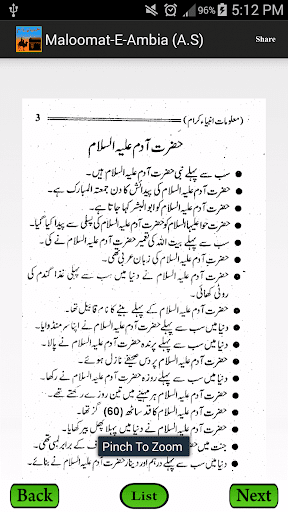 96% 5:12 PM
Maloomat-E-Ambia (A.S)
Share
(معلومات انبیاء کرام) 3
حضرت آدم علیہ السلام
سب سے پہلے نبی حضرت آدم علیہ السلام ہیں۔
حضرت آدم علیہ السلام کی پیدائش کا دن جمعۃ المبارک ہے۔
حضرت آدم علیہ السلام کو ابوالبشر کہا جاتا ہے۔
حضرت حوا علیہا السلام کو حضرت آدم علیہ السلام کی پسلی سے پیدا کیا گیا۔
سب سے پہلے بیت اللہ کی تعمیر حضرت آدم علیہ السلام نے کی۔
حضرت آدم علیہ السلام کی زبان عربی تھی۔
حضرت آدم علیہ السلام نے دنیا میں سب سے پہلی غذا گندم کی
روٹی کھائی۔
حضرت آدم علیہ السلام کے پہلے بیٹے کا نام قابیل تھا۔
دنیا میں سب سے پہلے حضرت آدم علیہ السلام نے اپنا سر منڈوایا۔
دنیا میں سب سے پہلے پرندہ حضرت آدم علیہ السلام نے پالا۔
حضرت آدم علیہ السلام پر دس صحیفے نازل ہوئے۔
دنیا میں سب سے پہلے روزہ حضرت آدم علیہ السلام نے رکھا۔
حضرت آدم علیہ السلام ہر مہینے میں تین روزے رکھتے تھے۔
حضرت آدم علیہ السلام کا قد ساٹھ (60) گز تھا۔
حضرت آدم علیہ السلام نے دنیا میں پہلا پھل بیر کھایا۔
جنت میں حضرت آدم علیہ السلام کی ناف کے برابر لمبی تھی۔
دنیا میں سب سے پہلے درہم اور دینار حضرت آدم علیہ السلام نے بنائے۔
Pinch To Zoom
Back
List
Next